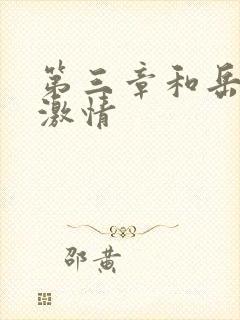 第三章和岳
激情
邵黄